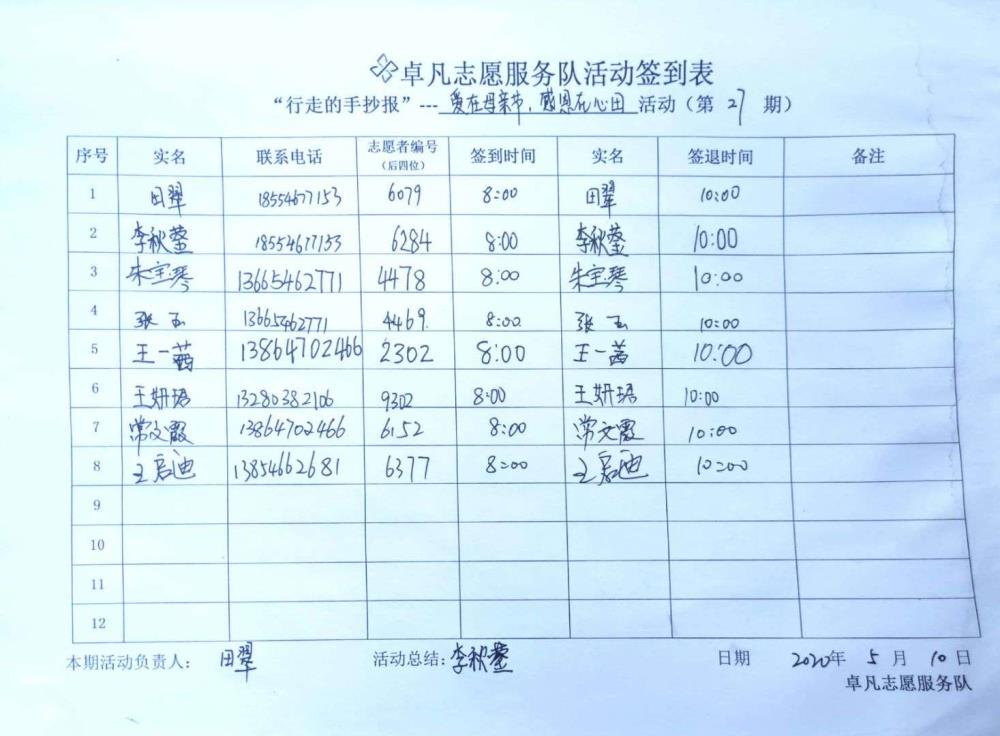 卓凡志愿服务队活动签到表
“行走的手抄报”---爱在母亲节,感恩在心田 活动(第 27 期)
序号 实名 联系电话 志愿者编号(后四位) 签到时间 实名 签退时间 备注
1 田翠 18554677153 6079 8:00 田翠 10:00
2 李秋蓥 18554677153 6284 8:00 李秋蓥 10:00
3 朱宝琴 13665462771 4478 8:00 朱宝琴 10:00
4 张玉 13665462771 4469 8:00 张玉 10:00
5 王一茜 13864702466 2302 8:00 王一茜 10:00
6 王妍珺 13280382106 9302 8:00 王妍珺 10:00
7 常文霞 13864702466 6152 8:00 常文霞 10:00
8 王启迪 13854662681 6377 8:00 王启迪 10:00
9
10
11
12
本期活动负责人: 田翠 活动总结:李秋蓥 日期 2020年 5 月 10 日
卓凡志愿服务队